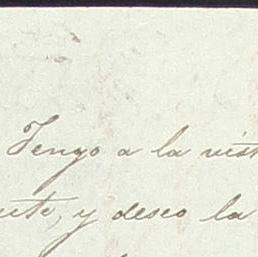 Tengo a la vist
y deseo la